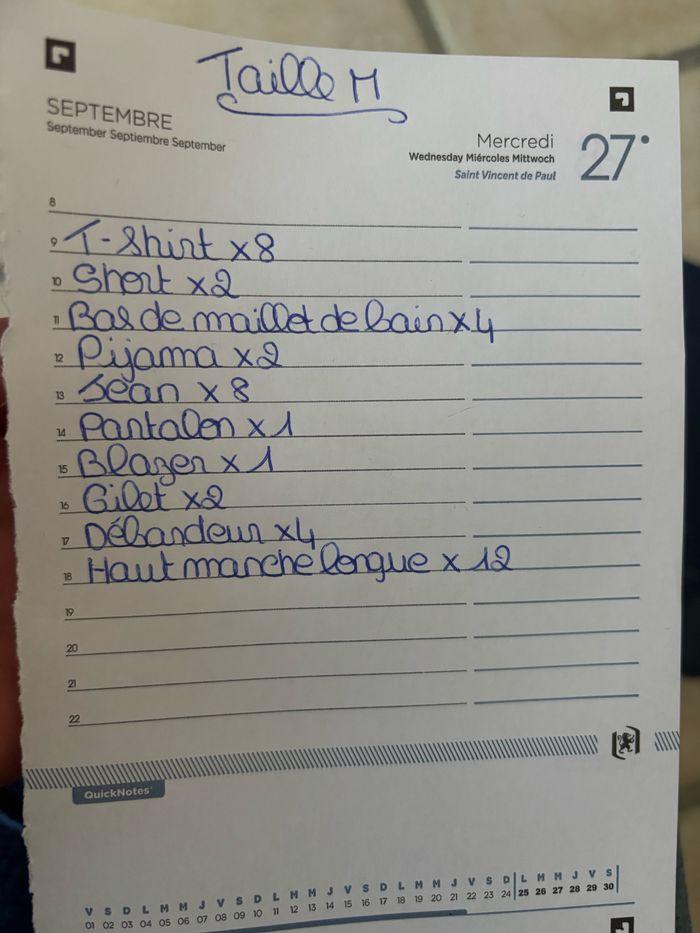 Taille M
SEPTEMBRE
September Septiembre September
Mercredi
Wednesday Miércoles Mittwoch
Saint Vincent de Paul
27
8
9 T-Shirt x8
10 Short x2
11 Bas de maillet de bain x4
12 Pijama x2
13 Jean x 8
14 Pantalon x 1
15 Blazer x 1
16 Gilet x2
17 Débardeur x4
18 Haut manche longue x 12
19
20
21
22
QuickNotes
V S D L M M J V S D L M M J V S D L M M J V S D L M M J V S
01 02 03 04 05 06 07 08 09 10 11 12 13 14 15 16 17 18 19 20 21 22 23 24 25 26 27 28 29 30